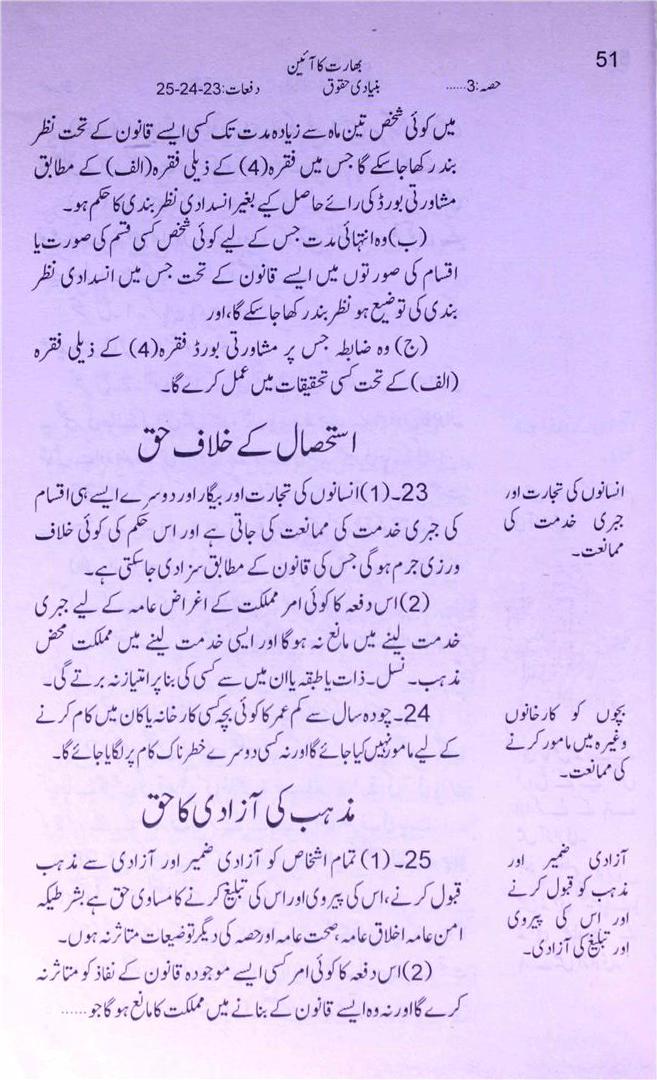 51
بھارت کا آئین
حصہ:3......
بنیادی حقوق
دفعات:23-24-25
میں کوئی شخص تین ماہ سے زیادہ مدت تک کسی ایسے قانون کے تحت نظر
بند رکھا جاسکے گا جس میں فقرہ(4) کے ذیلی فقرہ (الف) کے مطابق
مشاورتی بورڈ کی رائے حاصل کیے بغیر انسدادی نظر بندی کا حکم ہو۔
(ب) وہ انتہائی مدت جس کے لیے کوئی شخص کسی قسم کی صورت یا
اقسام کی صورتوں میں ایسے قانون کے تحت جس میں انسدادی نظر
بندی کی توضیع ہو نظر بند رکھا جاسکے گا،اور
(ج) وہ ضابطہ جس پر مشاورتی بورڈ فقرہ (4) کے ذیلی فقرہ
(الف) کے تحت کسی تحقیقات میں عمل کرے گا۔
استحصال کے خلاف حق
انسانوں کی تجارت اور
جبری خدمت کی
ممانعت۔
23۔(1) انسانوں کی تجارت اور بیگار اور دوسرے ایسے ہی اقسام
کی جبری خدمت کی ممانعت کی جاتی ہے اور اس حکم کی کوئی خلاف
ورزی جرم ہوگی جس کی قانون کے مطابق سزا دی جاسکتی ہے۔
(2) اس دفعہ کا کوئی امر مملکت کے اغراض عامہ کے لیے جبری
خدمت لینے میں مانع نہ ہوگا اور ایسی خدمت لینے میں مملکت محض
مذہب۔ نسل۔ ذات یا طبقہ یا ان میں سے کسی کی بنا پر امتیاز نہ برتے گی۔
بچوں کو کارخانوں
وغیرہ میں مامور کرنے
کی ممانعت۔
24۔ چودہ سال سے کم عمر کا کوئی بچہ کسی کارخانہ یا کان میں کام کرنے
کے لیے مامور نہیں کیا جائے گا اور نہ کسی دوسرے خطرناک کام پر لگایا جائے گا۔
مذہب کی آزادی کا حق
آزادی ضمیر اور
مذہب کو قبول کرنے
اور اس کی پیروی
اور تبلیغ کی آزادی۔
25۔ (1) تمام اشخاص کو آزادی ضمیر اور آزادی سے مذہب
قبول کرنے،اس کی پیروی اور اس کی تبلیغ کرنے کا مساوی حق ہے بشرطیکہ
امن عامہ اخلاق عامہ، صحت عامہ اور حصہ کی دیگر توضیعات متاثر نہ ہوں۔
(2) اس دفعہ کا کوئی امر کسی ایسے موجودہ قانون کے نفاذ کو متاثر نہ
کرے گا اور نہ وہ ایسے قانون کے بنانے میں مملکت کا مانع ہوگا جو......